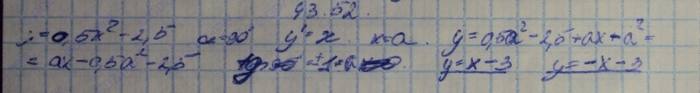 43.52.
y=0,5x²-2,5 α=90° y'=x x=a. y=0,5a²-2,5+ax-a²=
=ax-0,5a²-2,5 ±1=a y=x-3 y=-x-3